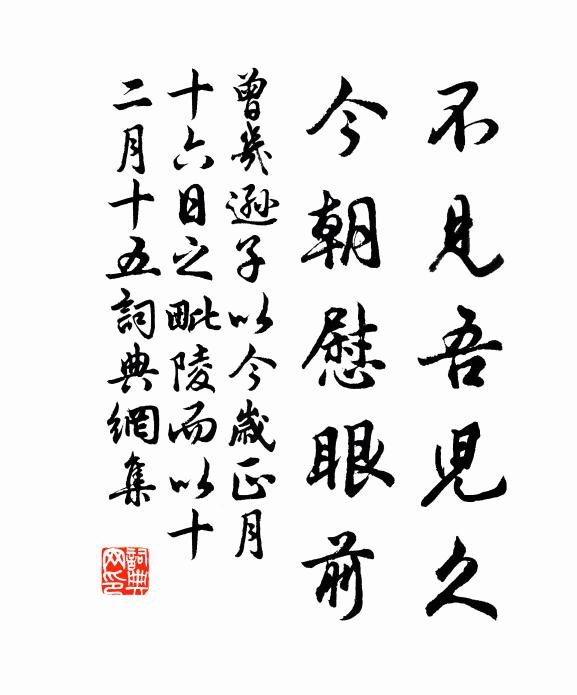 不見吾兒久
今朝慰眼前
曾幾遜子以今歲正月
十六日之毗陵而以十
二月十五詞典網集
詞典網印